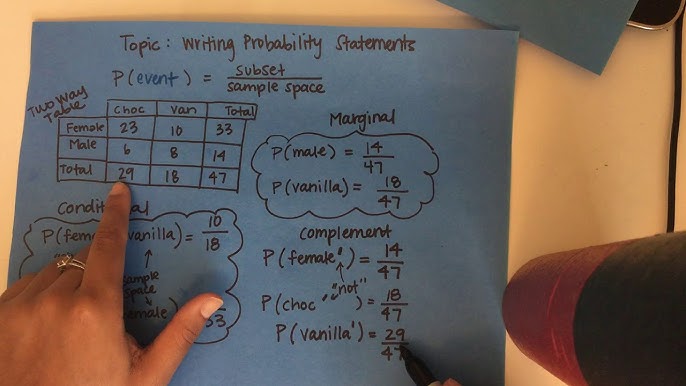 Topic: Writing Probability Statements
P(event) = subset/sample space
Two Way Table
Choc Van Total
Female 23 10 33
Male 6 8 14
Total 29 18 47
Marginal
P(male) = 14/47
P(vanilla) = 18/47
Conditional
P(fem vanilla) = 10/18
sample space
emale) 33
Complement
P(female') = 14/47
"not"
P(choc ') = 18/47
P(vanilla') = 29/47